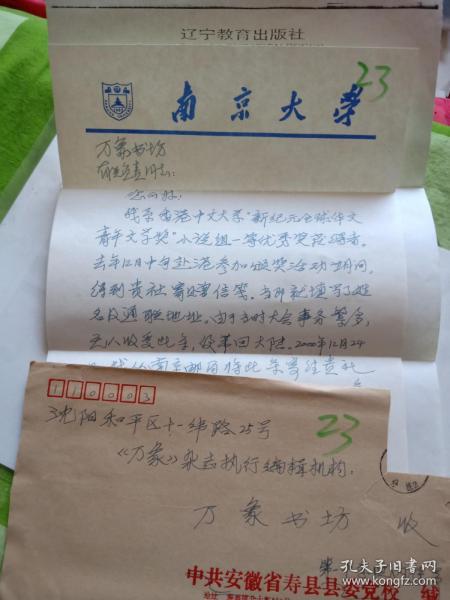 辽宁教育出版社
23
南京大学
万象书坊
有关负责同志:
您们好,
我系香港中文大学"新纪元全球华文
青年文学奖"小说组一等优秀奖获得者。
去年12月中旬赴港参加颁奖活动期间,
得到贵社
名及通联地址。由于当时大会事务繁多,
无人收交此卡,便带回大陆。2000年12月24
110003
沈阳和平区十一纬路25号
《万象》杂志执行编辑机构.
23
万象书坊 收
中共安徽省寿县县委党校 缄
孔夫子旧书网